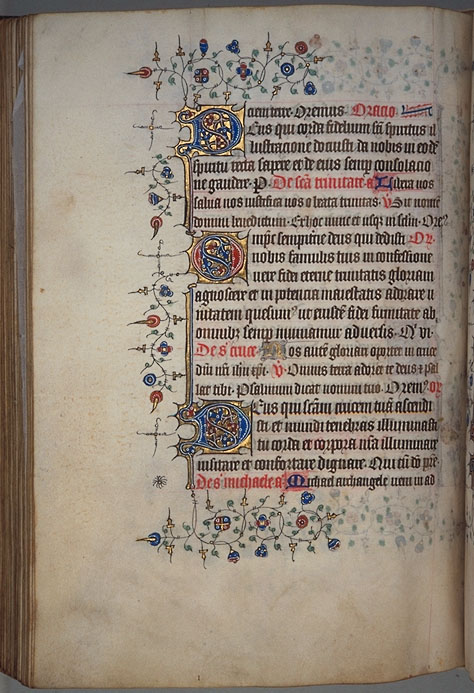 a iuuentute. Oremus. Oratio
Deus qui corda fidelium sancti spiritus il
lustracione docuisti da nobis in eodem
spiritu recta sapere et de eius semper consolacio
ne gaudere. P. De sca trinitate. a. Libera nos
salua nos iustifica nos o beata trinitas. V Sit nomen
domini benedictum. Ex hoc nunc et usqz in sclm. Orem9
Omnips sempiterne deus qui dedisti Or.
nobis famulis tuis in confessione
uere fidei eterne trinitatis gloriam
agnoscere et in potencia maiestatis adorare u
nitatem quesum9 ut eiusdem fidei firmitate ab
omnibz semper muniamur aduersis. Q vi.
De s cruce. Nos autem gloriari oportet in cruce
dni nri ihu xpi. V. Omnis terra adoret te deus et psal
lat tibi. Psalmum dicat nomini tuo. Orem9 or
Deus qui sctam crucem tuam ascendi
sti et mundi tenebras illuminasti
tu corda et corpora nra illuminare
uisitare et confortare dignare. Qui cum deo pre.
De s michaele a. Michael archangele ueni in ad